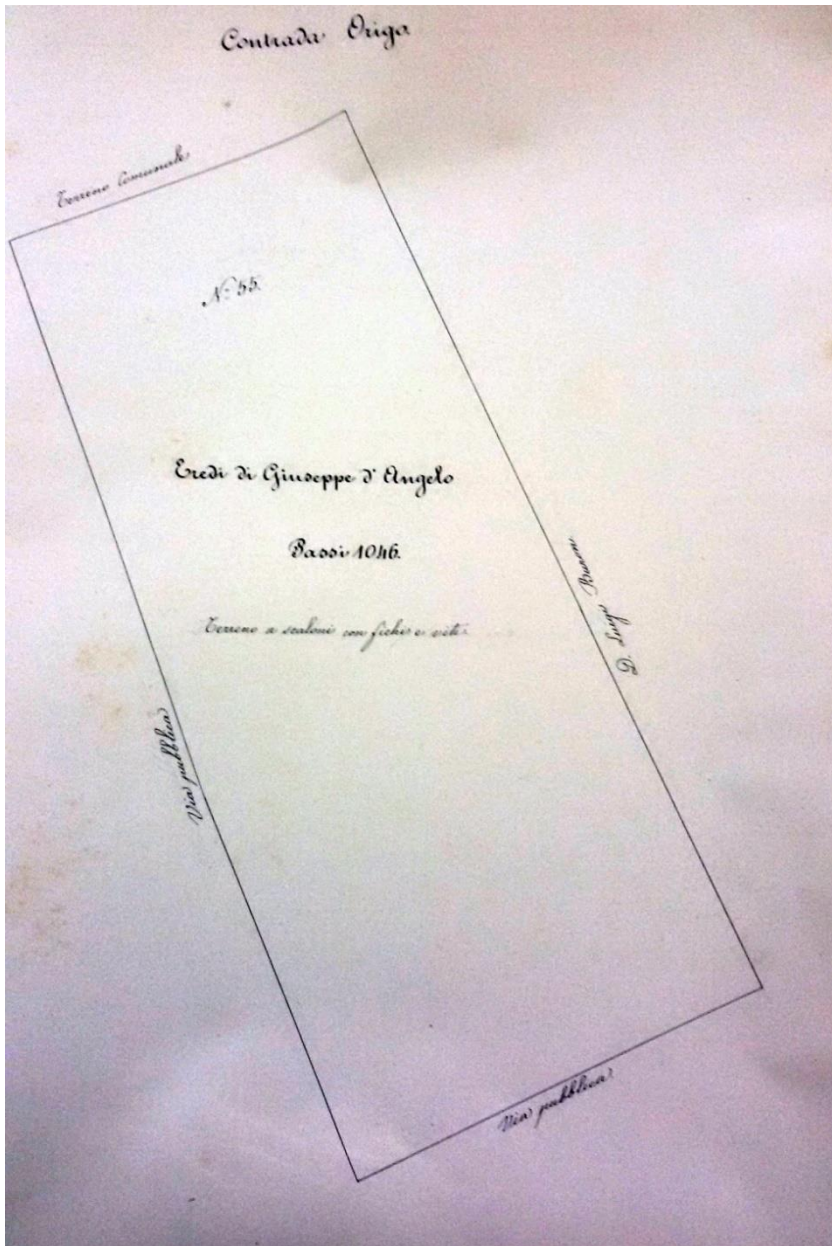 Contrada Origo
Terreno Comunale
N.º 55.
Eredi di Giuseppe d'Angelo
Passi 1046.
Terreno a scaloni con fichi e viti
D. Luigi
Via pubblica
Via pubblica